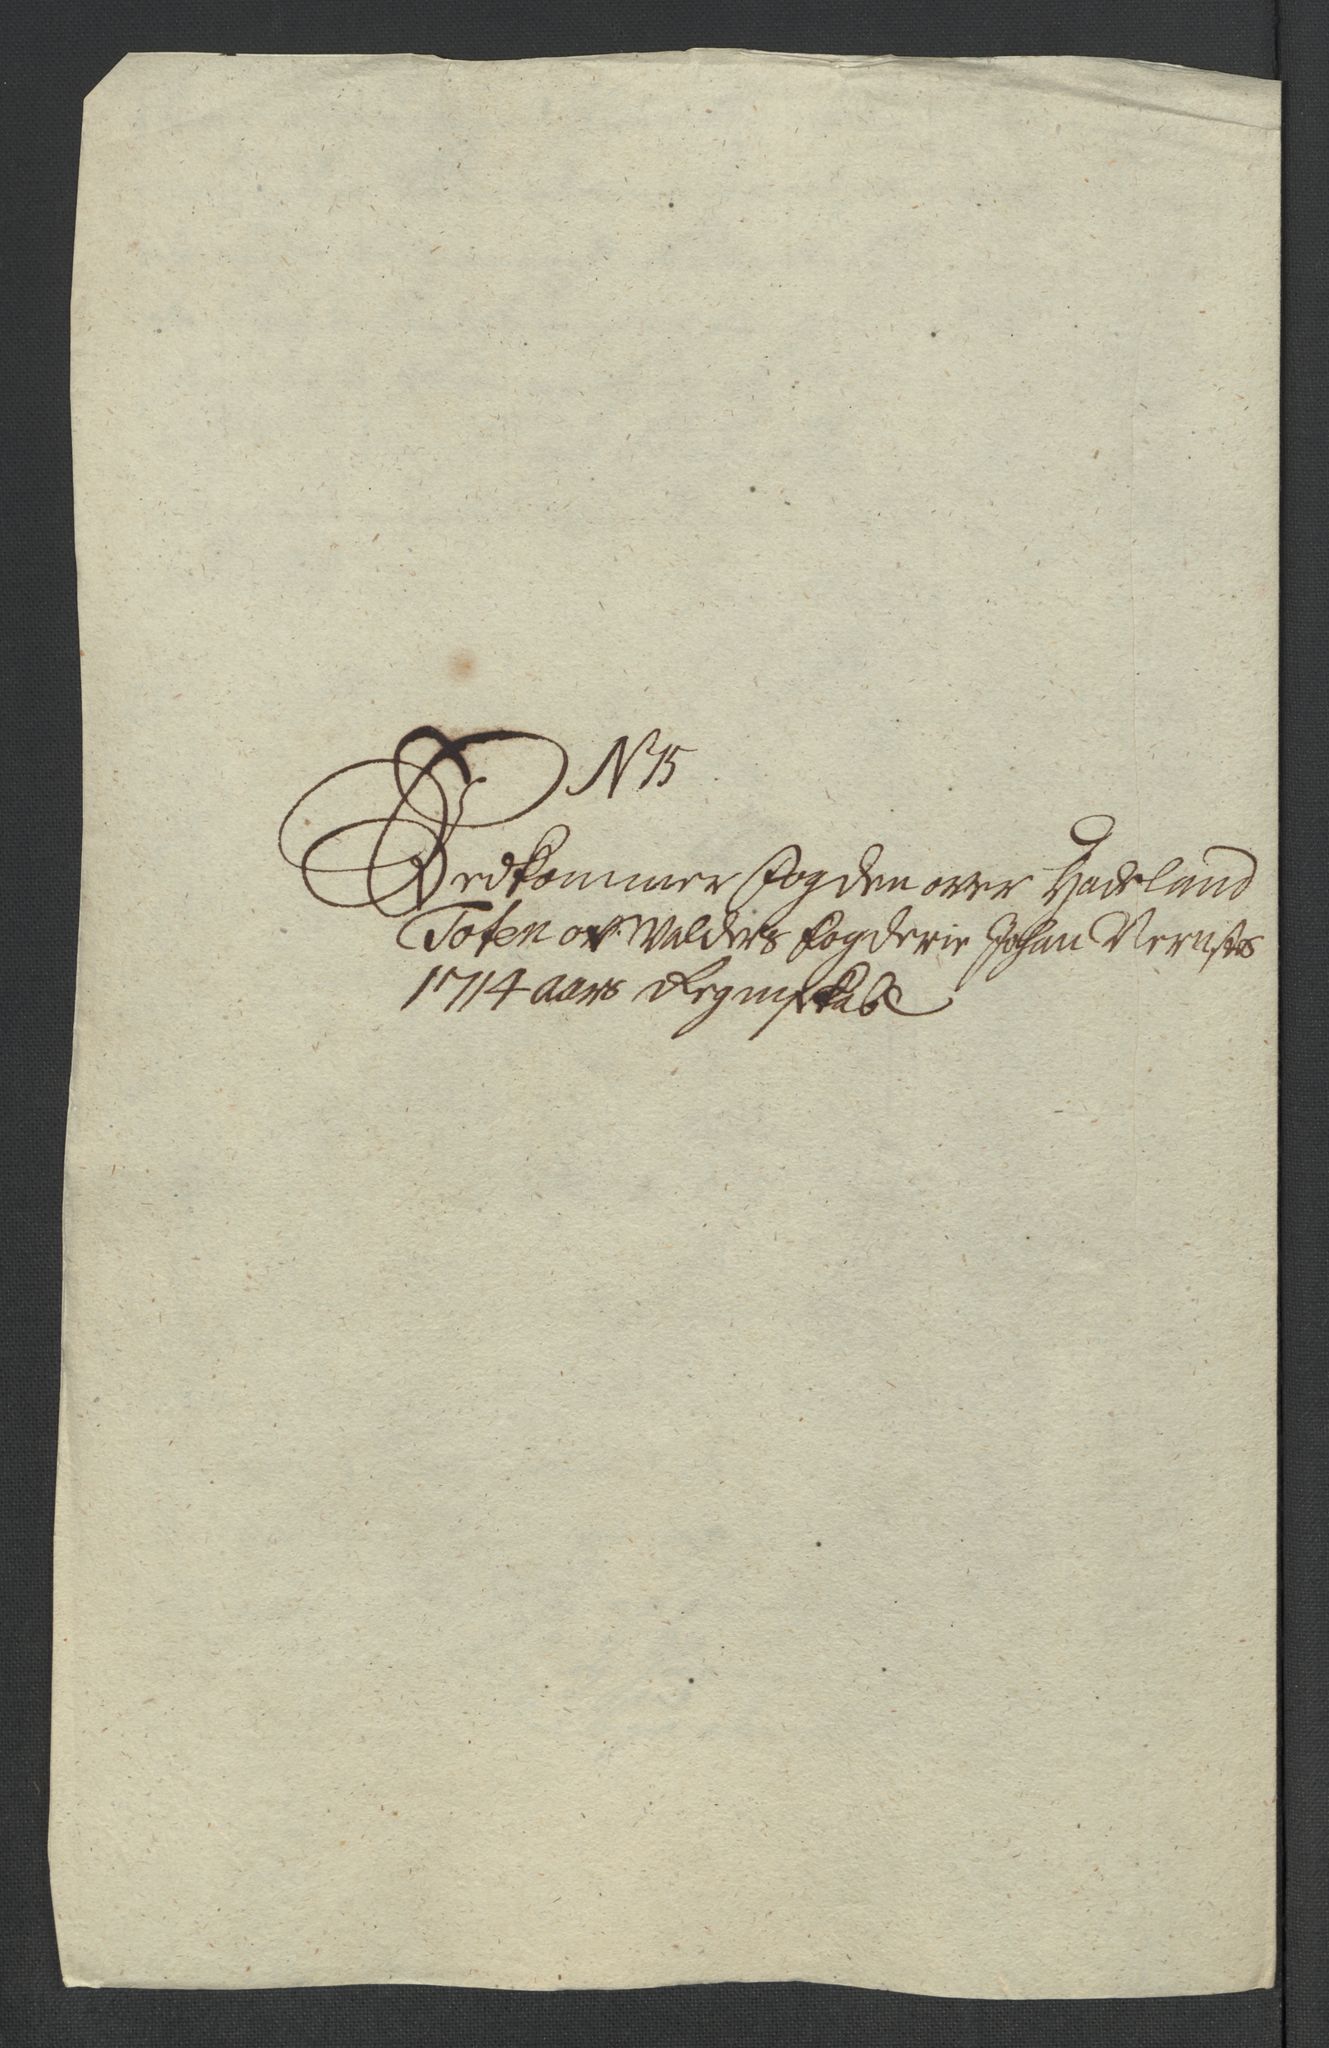 N 15
Vedkommer Fogden over Hadeland
Toten og Valders Fogderie Johan Vernstes
1714 aars Regnskab